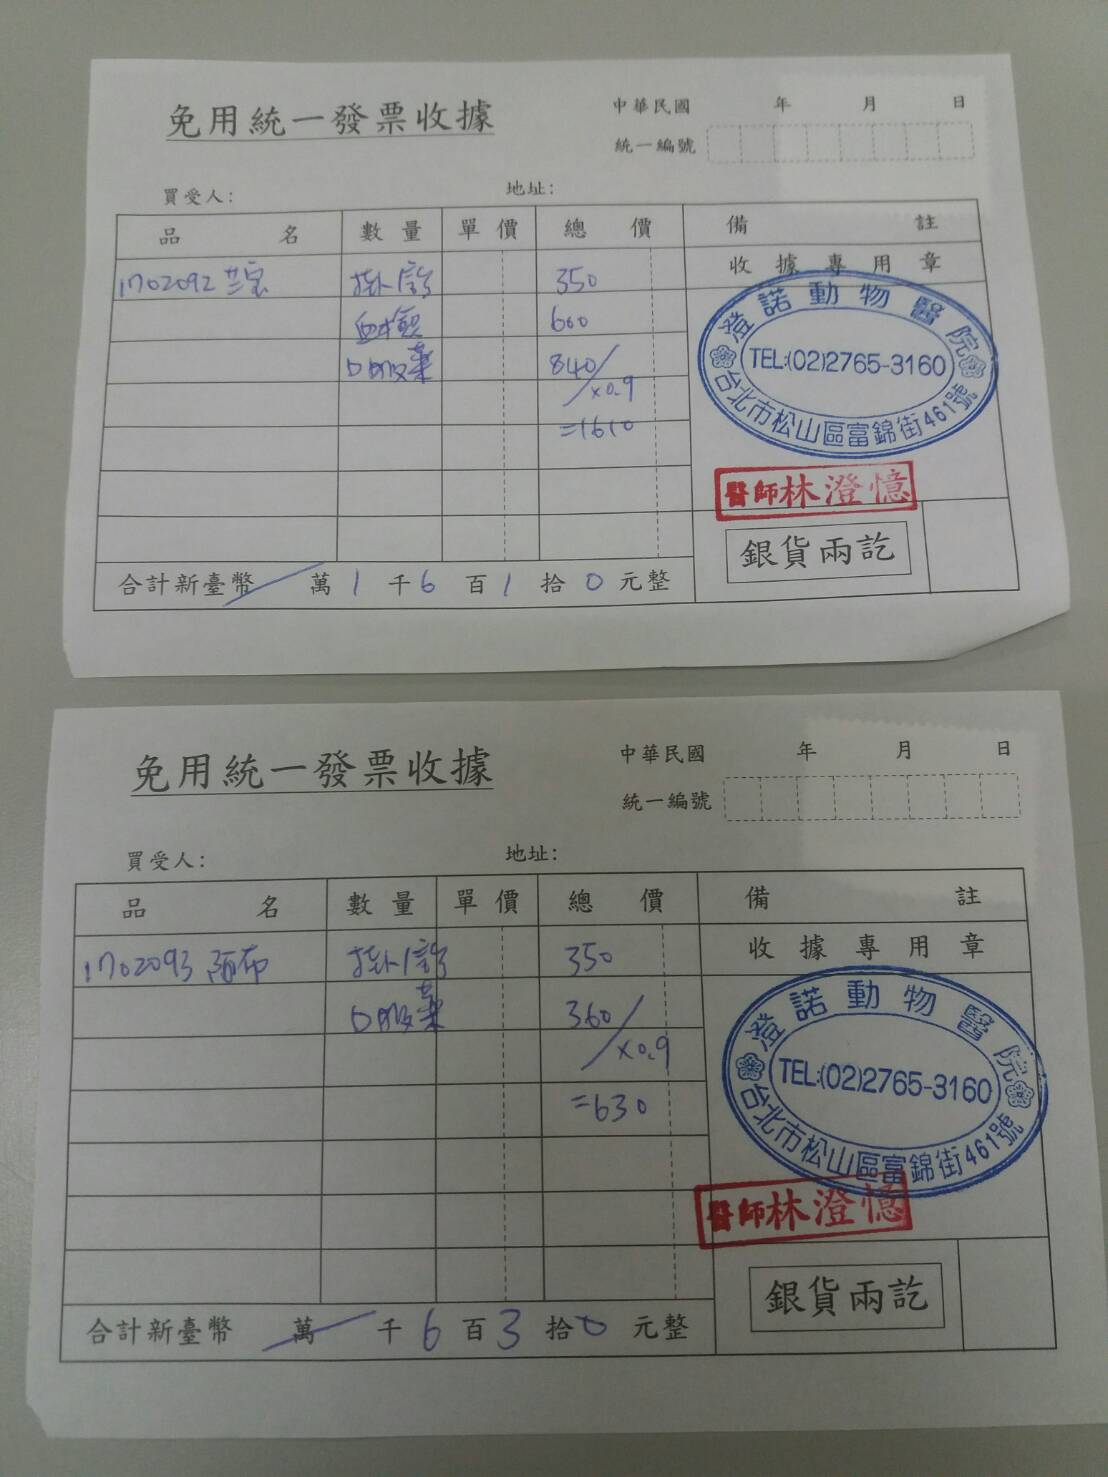 免用統一發票收據
中華民國 年 月 日
統一編號
買受人: 地址:
品 名 數 量 單 價 總 價 備 註
收 據 專 用 章
1702092 芸宝 掛/診 350
血檢 600
口服葯 840/
x0.9
=1610
澄諾動物醫院
TEL:(02)2765-3160
台北市松山區富錦街461號
醫師林澄憶
銀貨兩訖
合計新臺幣 萬 1 千 6 百 1 拾 0 元整
免用統一發票收據
中華民國 年 月 日
統一編號
買受人: 地址:
品 名 數 量 單 價 總 價 備 註
收 據 專 用 章
1702093 陌布 掛/診 350
口服葯 360/
x0.9
=630
澄諾動物醫院
TEL:(02)2765-3160
台北市松山區富錦街461號
醫師林澄憶
銀貨兩訖
合計新臺幣 萬 千 6 百 3 拾 0 元整